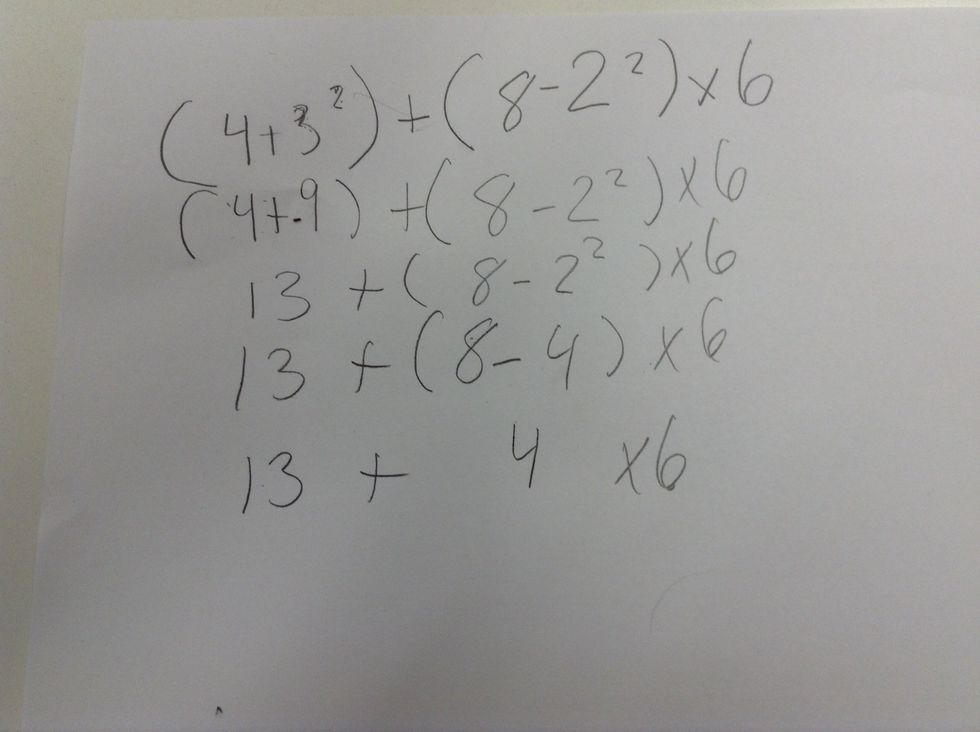 (4+3²)+(8-2²)×6
(4+9)+(8-2²)×6
13+(8-2²)×6
13+(8-4)×6
13 + 4 ×6